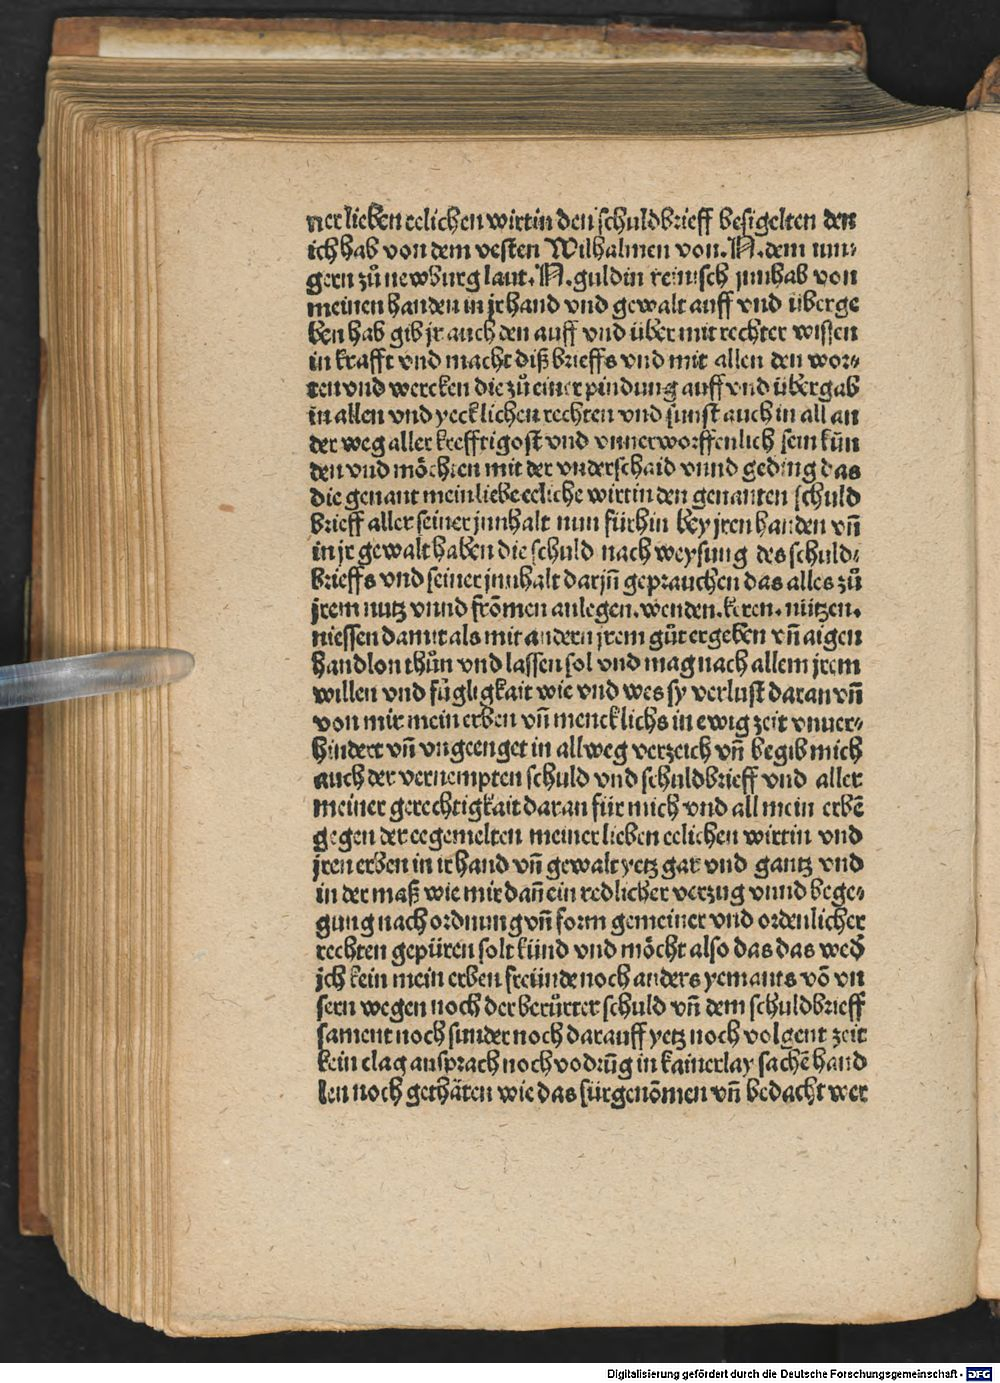 ner lieben eelichen wirtin den schuldbrieff besigelten den
ich hab von dem vesten Wilhalmen von. N. dem mu̅-
gern zů newburg laut. N. guldin reinisch jnnhab von
meinen handen in jr hand vnd gewalt auff vnd überge
ben hab gib jr auch den auff vnd über mit rechter wissen
in krafft vnd macht diß brieffs vnd mit allen den wor-
ten vnd wercken die zů einer pindung auff vnd übergab
in allen vnd yecklichen rechten vnd sunst auch in all an
der weg aller krefftigost vnd vnuerworffenlich sein kün
den vnd möchten mit der vnderschaid vnnd geding das
die genant mein liebe eeliche wirtin den genanten schuld
brieff aller seiner jnnhalt nun fürhin bey jren handen vn̅
in jr gewalt haben die schuld nach weysung des schuld-
brieffs vnd seiner jnnhalt darjn̅ geprauchen das alles zů
jrem nutz vnnd fro̅men anlegen. wenden. keren. nützen.
niessen damit als mit andern jrem gůt ergeben vn̅ aigen
handlon thůn vnd lassen sol vnd mag nach allem jrem
willen vnd fügligkait wie vnd wes sy verlust daran vn̅
von mir mein erben vn̅ mencklichs in ewig zeit vnuer-
hindert vn̅ vngeenget in allweg verzeich vn̅ begib mich
auch der vernempten schuld vnd schuldbrieff vnd aller
meiner gerechtigkait daran für mich vnd all mein erbe̅
gegen der eegemelten meiner lieben eelichen wirtin vnd
jren erben in ir hand vn̅ gewalt yetz gar vnd gantz vnd
in der maß wie mir dan̅ ein redlicher verzug vnnd bege-
gung nach ordnung vn̅ form gemeiner vnd ordenlicher
rechten gepüren solt künd vnd möcht also das das wed̅
jch kein mein erben freünde noch anders yemants vo̅ vn
sern wegen noch der berůrter schuld vn̅ dem schuldbrieff
sament noch sunder noch darauff yetz noch volgent zeit
kein clag ansprach noch vodru̅g in kainerlay sache̅ hand
len noch gethäten wie das fürgeno̅men vn̅ bedacht wer
Digitalisierung gefördert durch die Deutsche Forschungsgemeinschaft - DFG